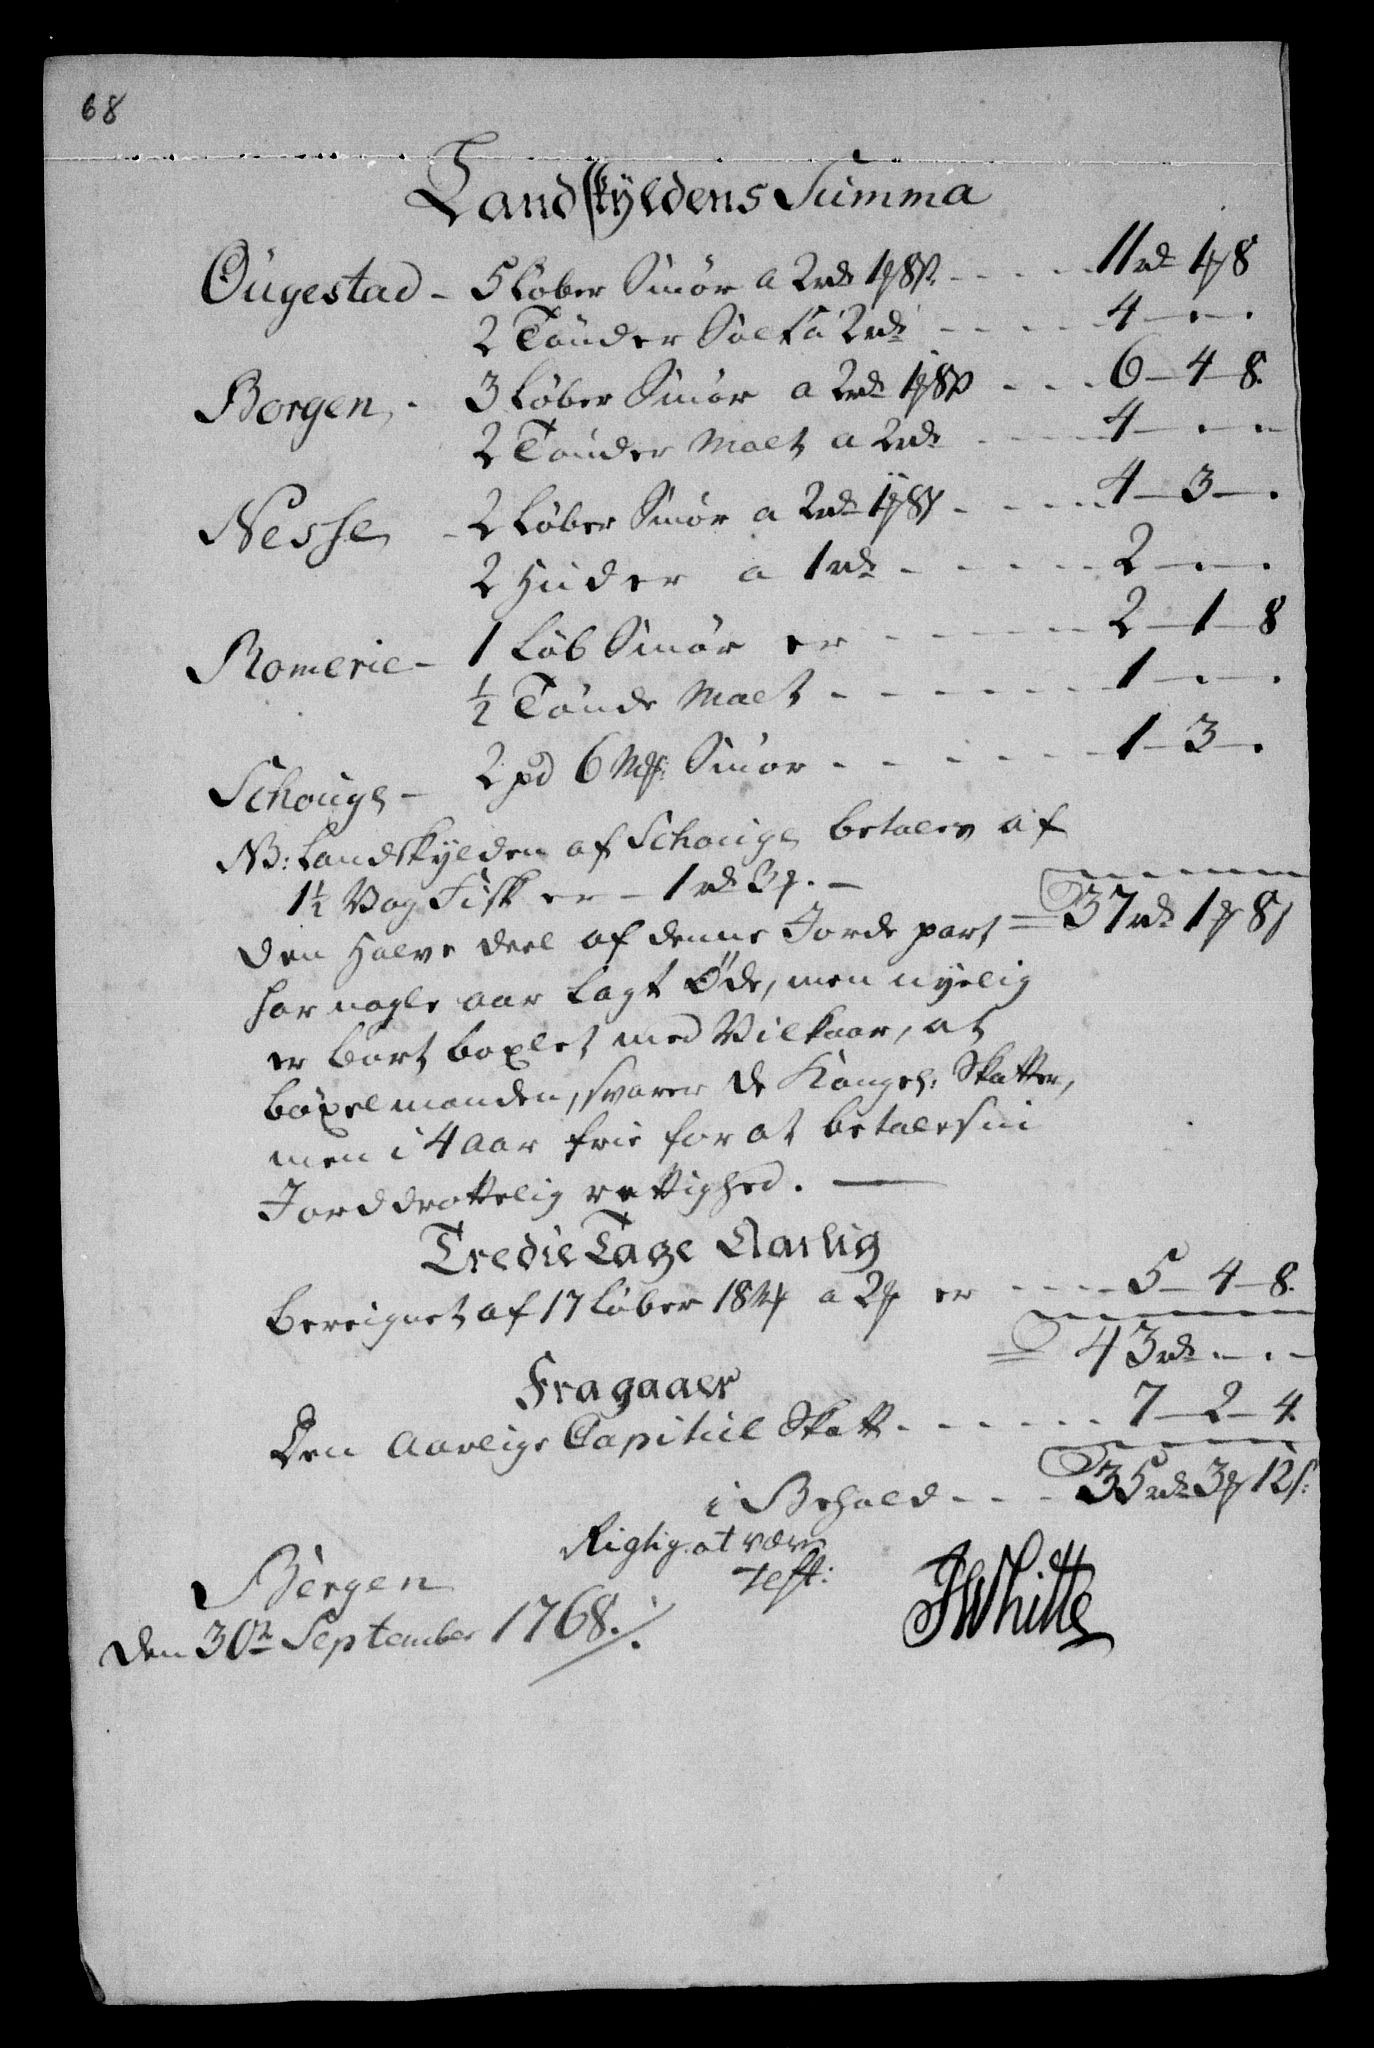 68
Landskyldens Summa
Ougestad - 5 Løber Smør a 2rd 1ʒ 8s - - - 11rd 1ʒ 8
2 Tønder Salt a 2rd - - - - 4 - - .
Borgen - 3 Løber Smør a 2rd 1ʒ 8s - - - 6 - 4 - 8.
2 Tønder Malt a 2rd - - - 4 - - -
Nesse - 2 Løber Smør a 2rd 1ʒ 8s - - - - 4 - 3 - .
2 Huder a 1rd - - - - - 2 - - .
Romerie - 1 Løb Smør er - - - - - 2 - 1 - 8
½ Tønde Malt - - - - - - 1 - - .
Schouge - 2 pd 6 Mk: Smør - - - - - 1 - 3 - .
NB: Landskylden af Schouge betales af
1½ Vog Fisk er - 1rd 3ʒ. -
37rd 1ʒ 8s
Den Halve deel af denne Jorde part
har nogle aar lagt Øde, men nyelig
er bort boxlet med Vilkaar, at
böxelmanden, svarer de Kongel: Skatter,
men i 4 aar frie for at betale sin
Jorddrottelig rettighed. -
Tredie Tage Aarlig
Bereignet af 17 Løber 18 mk a 2ʒ er - - - - 5 - 4 - 8.
43rd - . -
Fragaaer
Den Aarlige Capitul Skatt - - - - - - 7 - 2 - 4.
i Behold - - - 35rd 3ʒ 12s:
Rigtig at være
Test:
JWhitte
Bergen
den 30te September 1768.